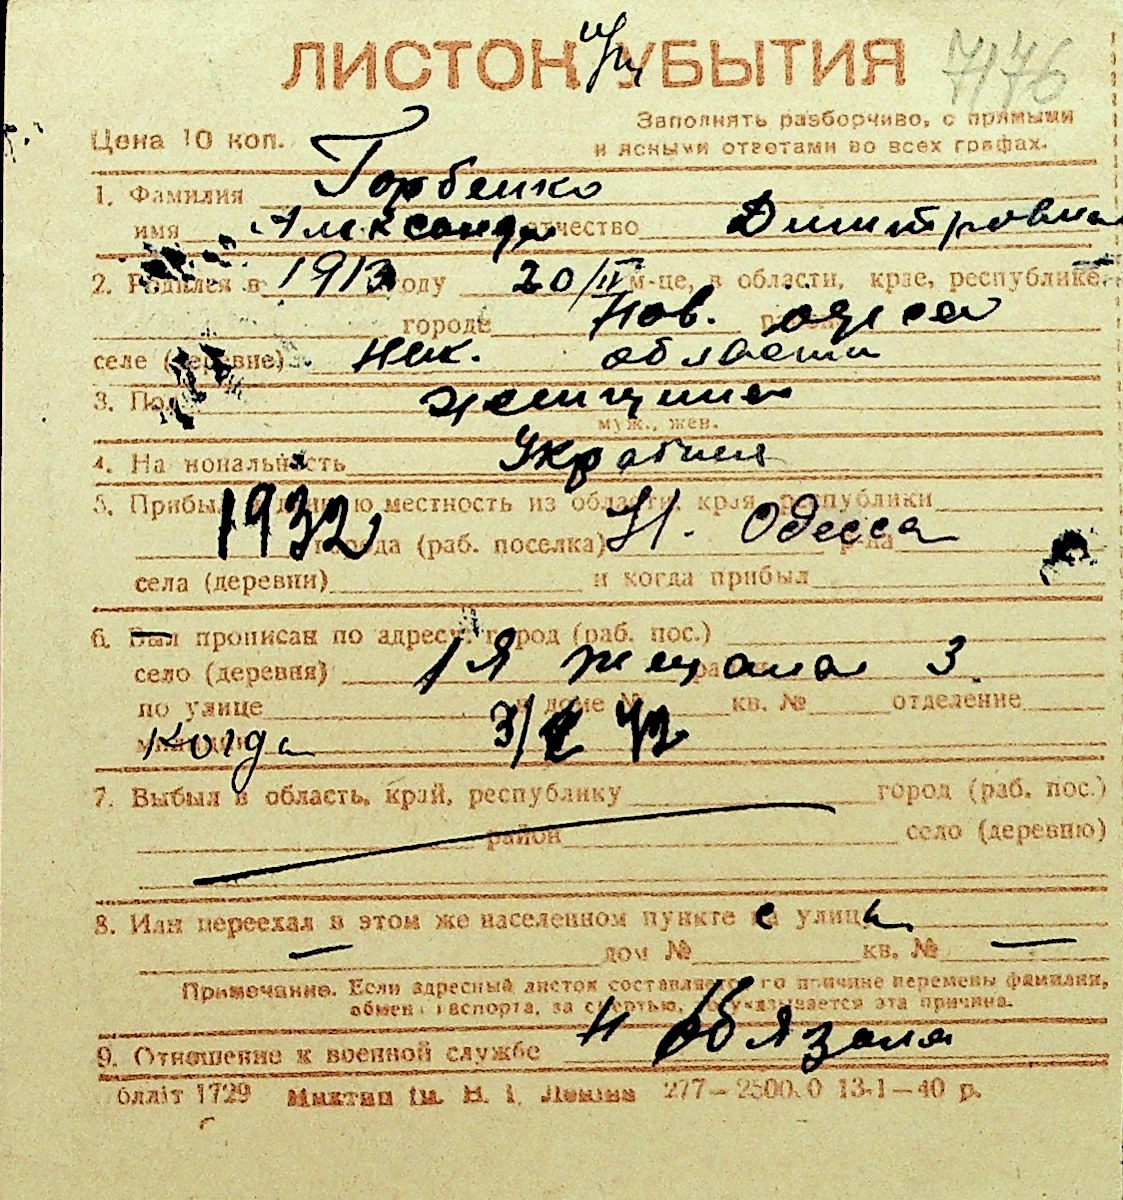 ЛИСТОК УБЫТИЯ
7176
Заполнять разборчиво, с прямыми
Цена 10 коп.
и ясными ответами во всех графах.
1. Фамилия Горбенко
имя Александра отчество Димитровна
2. Родился в 1913 году 20/IV м-це, в области, крае, республике
городе Нов. Одеса
селе (деревне) Ник. области
3. Пол женщина
муж., жен.
4. Национальность Украинка
5. Прибыл в данную местность из области, края, республики
1932 города (раб. поселка) Н. Одесса р-на
села (деревни) и когда прибыл
6. Был прописан по адресу: город (раб. пос.)
село (деревня) 1я 3
по улице в доме № кв. № отделение
Когда 3/ 42
7. Выбыл в область, край, республику город (раб. пос.)
район село (деревню)
8. Или переехал в этом же населенном пункте с улицы
дом № кв. №
Примечание. Если адресный листок составляется по причине перемены фамилии,
обмена паспорта, за смертью, указывается эта причина.
9. Отношение к военной службе н обязана
олліт 1729 Миктип ім. В. І. Леніна 277—25000 13-1—40 р.